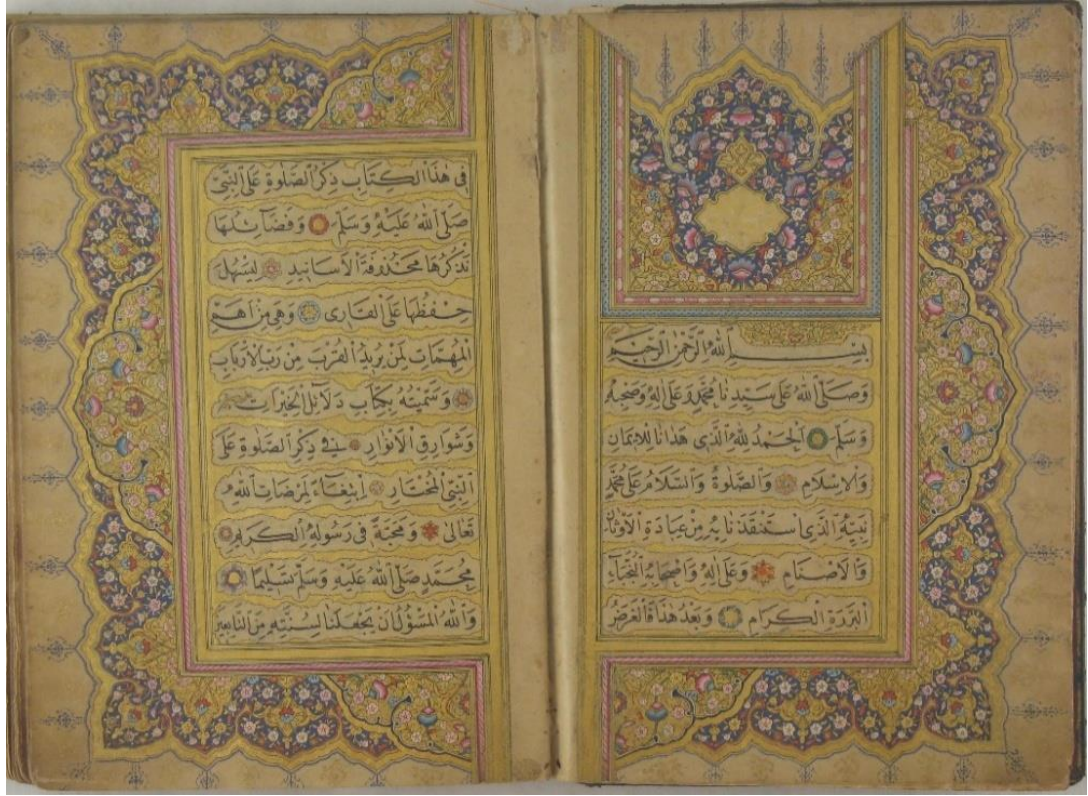 بِسْمِ اللهِ الرَّحْمٰنِ الرَّحِيمِ
وَصَلَّى اللهُ عَلَى سَيِّدِنَا مُحَمَّدٍ وَعَلَى اٰلِهِ وَصَحْبِهِ
وَسَلَّمَ اَلْحَمْدُ لِلّٰهِ الَّذِى هَدَانَا لِلْاِيمَانِ
وَالْاِسْلَامِ وَالصَّلٰوةُ وَالسَّلَامُ عَلَى مُحَمَّدٍ
نَبِيِّهِ الَّذِى اسْتَنْقَذَنَا بِهِ مِنْ عِبَادَةِ الْاَوْثَانِ
وَالْاَصْنَامِ وَعَلَى اٰلِهِ وَاَصْحَابِهِ النُّجَبَآءِ
الْبَرَرَةِ الْكِرَامِ وَبَعْدَ هٰذَا فَالْغَرَضُ
فِى هٰذَا الْكِتَابِ ذِكْرُ الصَّلٰوةِ عَلَى النَّبِىِّ
صَلَّى اللهُ عَلَيْهِ وَسَلَّمَ وَفَضَآئِلُهَا
نَذْكُرُهَا مَحْذُوفَةَ الْاَسَانِيدِ لِيَسْهُلَ
حِفْظُهَا عَلَى الْقَارِى وَهِىَ مِنْ اَهَمِّ
الْمُهِمَّاتِ لِمَنْ يُرِيدُ الْقُرْبَ مِنْ رَبِّ الْاَرْبَابِ
وَسَمَّيْتُهُ بِكِتَابِ دَلَآئِلِ الْخَيْرَاتِ
وَشَوَارِقِ الْاَنْوَارِ فِى ذِكْرِ الصَّلٰوةِ عَلَى
النَّبِىِّ الْمُخْتَارِ اِبْتِغَآءً لِمَرْضَاتِ اللهِ
تَعَالٰى وَمَحَبَّةً فِى رَسُولِهِ الْكَرِيمِ
مُحَمَّدٍ صَلَّى اللهُ عَلَيْهِ وَسَلَّمَ تَسْلِيمًا
وَاللهُ الْمَسْؤُلُ اَنْ يَجْعَلَنَا لِسُنَّتِهِ مِنَ التَّابِعِينَ